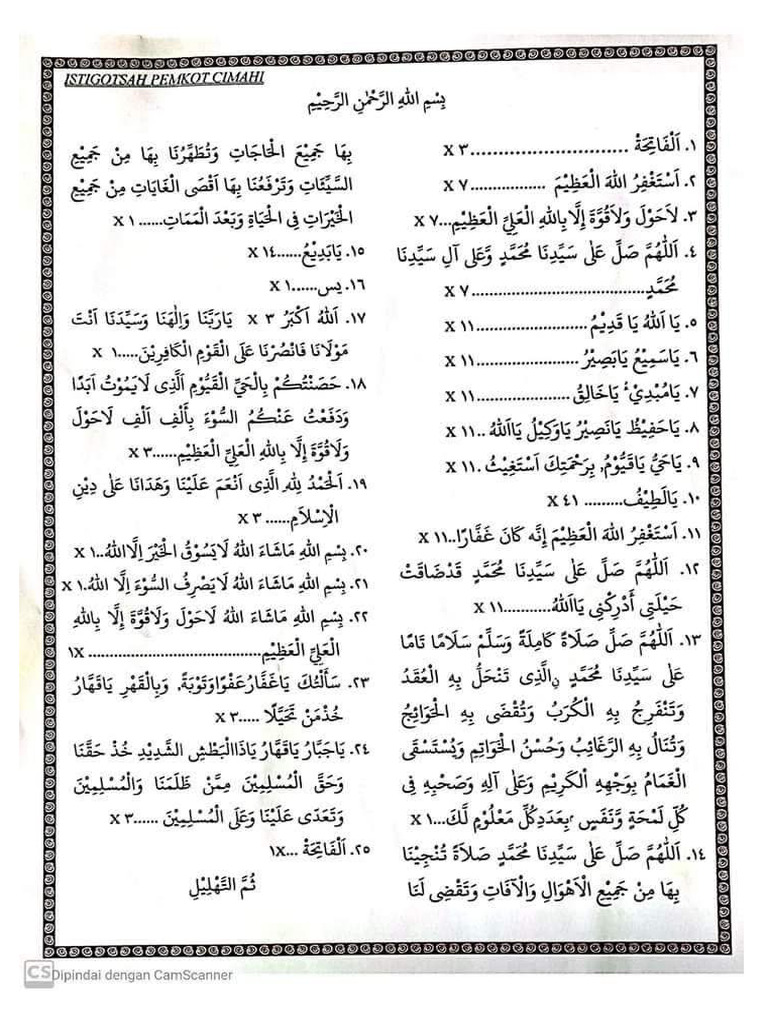 ISTIGOTSAH PEMKOT CIMAHI
بِسْمِ اللهِ الرَّحْمٰنِ الرَّحِيْمِ
١. اَلْفَاتِحَةْ ............................ ٣ X
٢. اَسْتَغْفِرُ اللهَ الْعَظِيْمَ .................. ٧ X
٣. لَاحَوْلَ وَلَاقُوَّةَ إِلَّا بِاللهِ الْعَلِيِّ الْعَظِيْمِ... ٧ X
٤. اَللّٰهُمَّ صَلِّ عَلٰى سَيِّدِنَا مُحَمَّدٍ وَّعَلٰى آلِ سَيِّدِنَا
مُحَمَّدٍ........................................ ٧ X
٥. يَا اَللهُ يَا قَدِيْمُ......................... ١١ X
٦. يَاسَمِيْعُ يَابَصِيْرُ......................... ١١ X
٧. يَامُبْدِيْءُ يَاخَالِقُ..................... ١١ X
٨. يَاحَفِيْظُ يَانَصِيْرُ يَاوَكِيْلُ يَااَللهُ .. ١١ X
٩. يَاحَيُّ يَاقَيُّوْمُ، بِرَحْمَتِكَ اَسْتَغِيْثُ. ١١ X
١٠. يَالَطِيْفُ......... ٤١ X
١١. اَسْتَغْفِرُ اللهَ الْعَظِيْمَ إِنَّه كَانَ غَفَّارًا.. ١١ X
١٢. اَللّٰهُمَّ صَلِّ عَلٰى سَيِّدِنَا مُحَمَّدٍ قَدْضَاقَتْ
حِيْلَتِي أَدْرِكْنِي يَااَللهُ............ ١١ X
١٣. اَللّٰهُمَّ صَلِّ صَلَاةً كَامِلَةً وَسَلِّمْ سَلَامًا تَامًا
عَلٰى سَيِّدِنَا مُحَمَّدٍ نِالَّذِى تَنْحَلُّ بِهِ الْعُقَدُ
وَتَنْفَرِجُ بِهِ الْكُرَبُ وَتُقْضَى بِهِ الْحَوَائِجُ
وَتُنَالُ بِهِ الرَّغَائِبُ وَحُسْنُ الْخَوَاتِمِ وَيُسْتَسْقَى
الْغَمَامُ بِوَجْهِهِ الْكَرِيْمِ وَعَلٰى آلِهِ وَصَحْبِهِ فِى
كُلِّ لَمْحَةٍ وَّنَفَسٍ بِعَدَدِكُلِّ مَعْلُوْمٍ لَّكَ... ١ X
١٤. اَللّٰهُمَّ صَلِّ عَلٰى سَيِّدِنَا مُحَمَّدٍ صَلَاةً تُنْجِيْنَا
بِهَا مِنْ جَمِيْعِ الْاَهْوَالِ وَالْآفَاتِ وَتَقْضِى لَنَا
بِهَا جَمِيْعَ الْحَاجَاتِ وَتُطَهِّرُنَا بِهَا مِنْ جَمِيْعِ
السَّيِّئَاتِ وَتَرْفَعُنَا بِهَا اَقْصَى الْغَايَاتِ مِنْ جَمِيْعِ
الْخَيْرَاتِ فِى الْحَيَاةِ وَبَعْدَ الْمَمَاتِ...... ١ X
١٥. يَابَدِيْعُ...... ١٤ X
١٦. يس...... ١ X
١٧. اَللهُ اَكْبَرُ ٣ X يَارَبَّنَا وَاِلٰهَنَا وَسَيِّدَنَا اَنْتَ
مَوْلَانَا فَانْصُرْنَا عَلَى الْقَوْمِ الْكَافِرِيْنَ..... ١ X
١٨. حَصَنْتُكُمْ بِالْحَيِّ الْقَيُّوْمِ الَّذِى لَايَمُوْتُ اَبَدًا
وَدَفَعْتُ عَنْكُمُ السُّوْءَ بِأَلْفِ اَلْفِ لَاحَوْلَ
وَلَاقُوَّةَ إِلَّا بِاللهِ الْعَلِيِّ الْعَظِيْمِ...... ٣ X
١٩. اَلْحَمْدُ لِلّٰهِ الَّذِى اَنْعَمَ عَلَيْنَا وَهَدَانَا عَلٰى دِيْنِ
الْاِسْلَامِ...... ٣ X
٢٠. بِسْمِ اللهِ مَاشَاءَ اللهُ لَايَسُوْقُ الْخَيْرَ اِلَّااللهُ.. ١ X
٢١. بِسْمِ اللهِ مَاشَاءَ اللهُ لَايَصْرِفُ السُّوْءَ اِلَّا اللهُ. ١ X
٢٢. بِسْمِ اللهِ مَاشَاءَ اللهُ لَاحَوْلَ وَلَاقُوَّةَ إِلَّا بِاللهِ
الْعَلِيِّ الْعَظِيْمِ........................................ ١X
٢٣. سَأَلْتُكَ يَاغَفَّارُعَفْوًاوَتَوْبَةً، وَبِالْقَهْرِ يَاقَهَّارُ
خُذْمَنْ تَحَيَّلَا ..... ٣ X
٢٤. يَاجَبَّارُ يَاقَهَّارُ يَاذَاالْبَطْشِ الشَّدِيْدِ خُذْ حَقَّنَا
وَحَقَّ الْمُسْلِمِيْنَ مِمَّنْ ظَلَمَنَا وَالْمُسْلِمِيْنَ
وَتَعَدَى عَلَيْنَا وَعَلَى الْمُسْلِمِيْنَ ...... ٣ X
٢٥. اَلْفَاتِحَةْ ... ١X
ثُمَّ التَّهْلِيْلِ
CS Dipindai dengan CamScanner